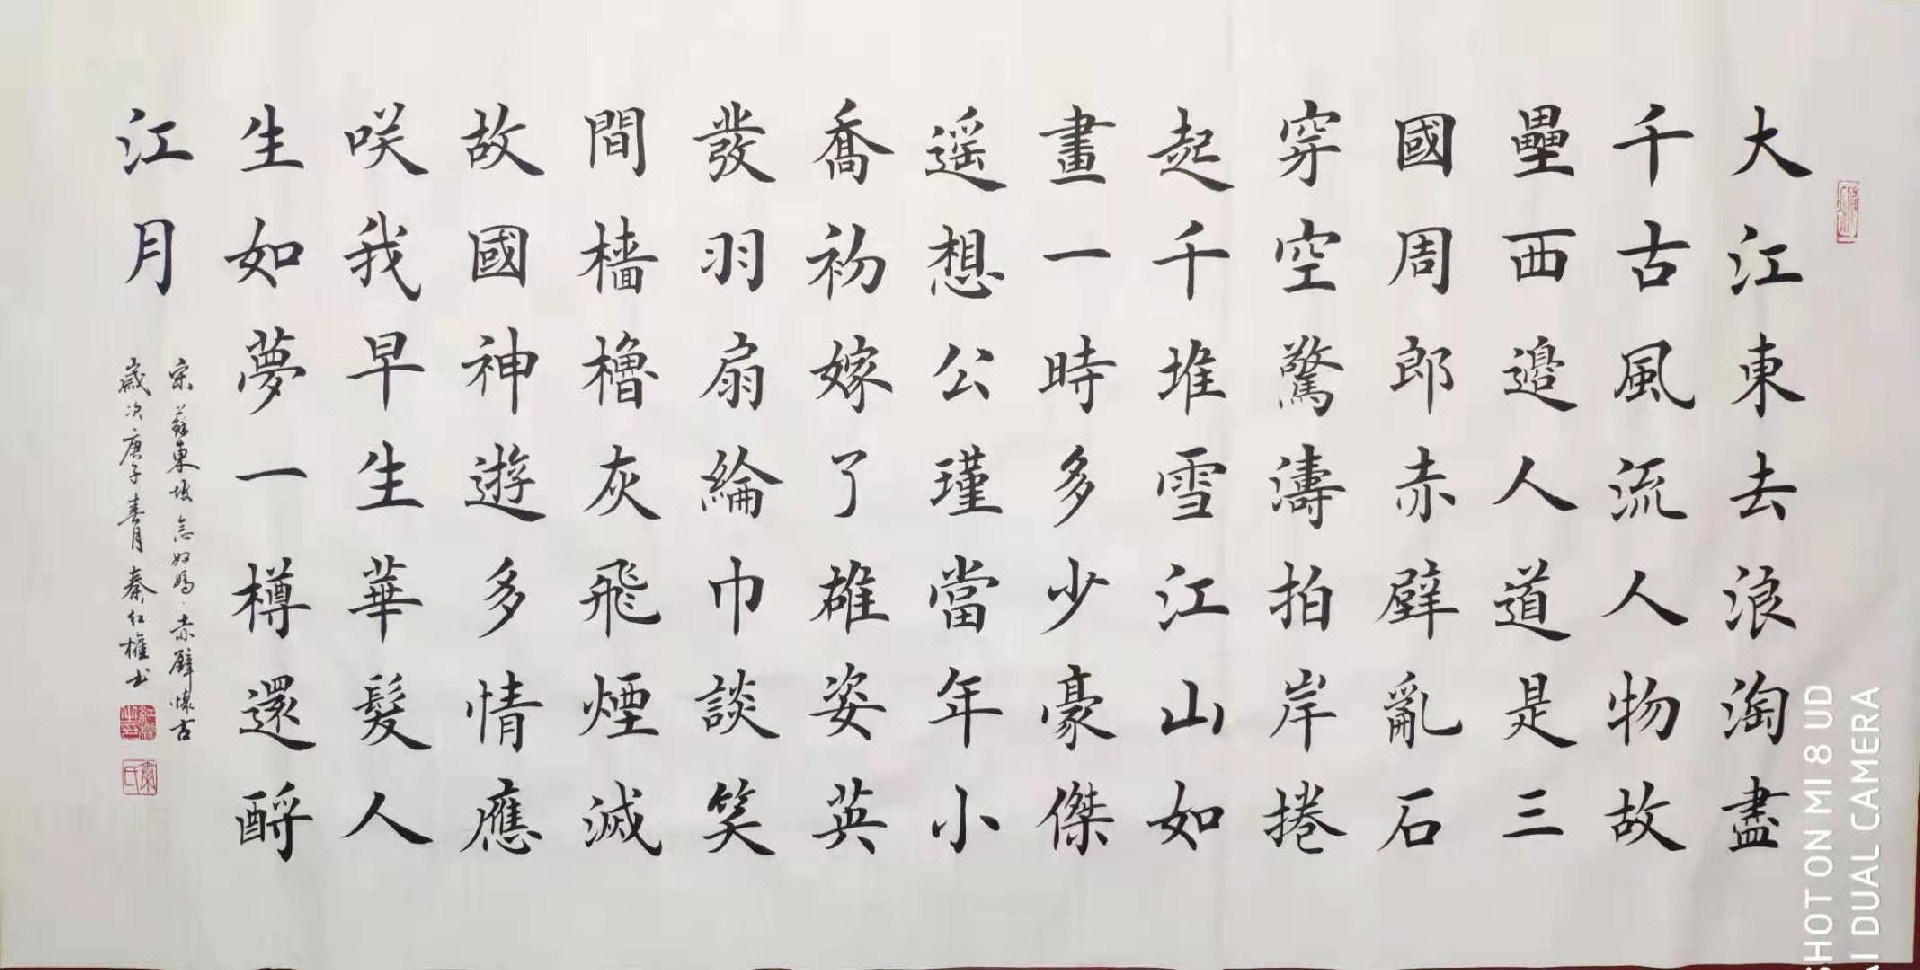 大江東去浪淘盡
千古風流人物故
壘西邊人道是三
國周郎赤壁亂石
穿空驚濤拍岸捲
起千堆雪江山如
畫一時多少豪傑
遥想公瑾當年小
喬初嫁了雄姿英
發羽扇綸巾談笑
間檣櫓灰飛煙滅
故國神遊多情應
咲我早生華髮人
生如夢一樽還酹
江月
宋蘇東坡念奴嬌·赤壁懷古
歲次庚子春月秦紅權书
SHOT ON MI 8 UD
AI DUAL CAMERA